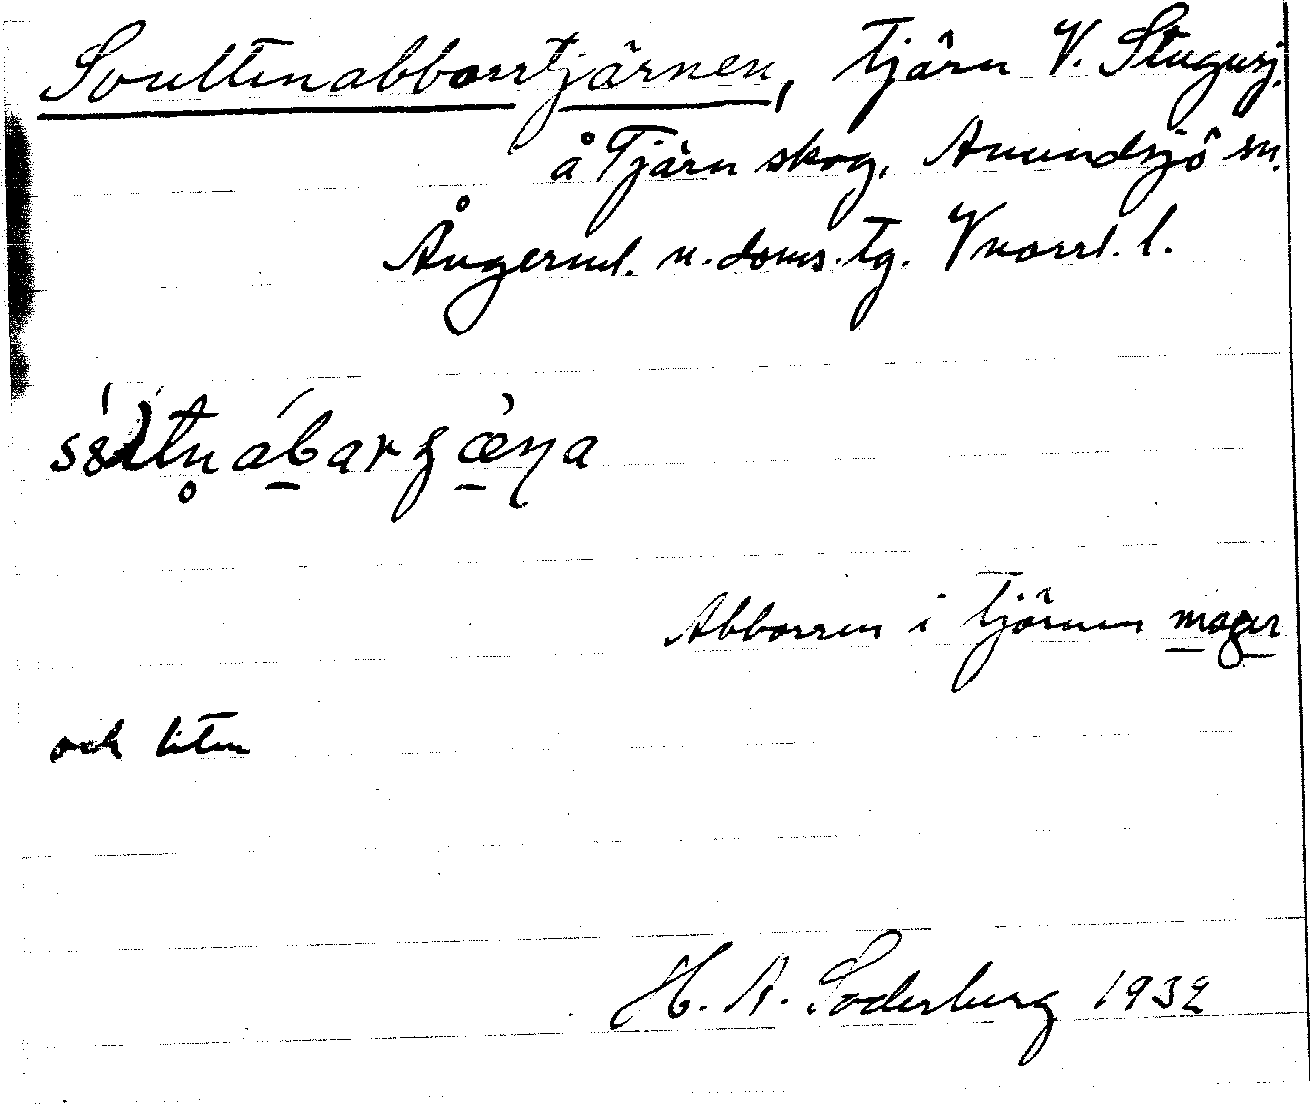 Svultenabborrtjärnen, tjärn V. Stugusj.
å Tjärn skog. Anundsjö sn.
Ångerml. n. doms. tg. Vnorrl. l.
Abborren i tjärnen mager
och liten
H. A. Söderberg 1932